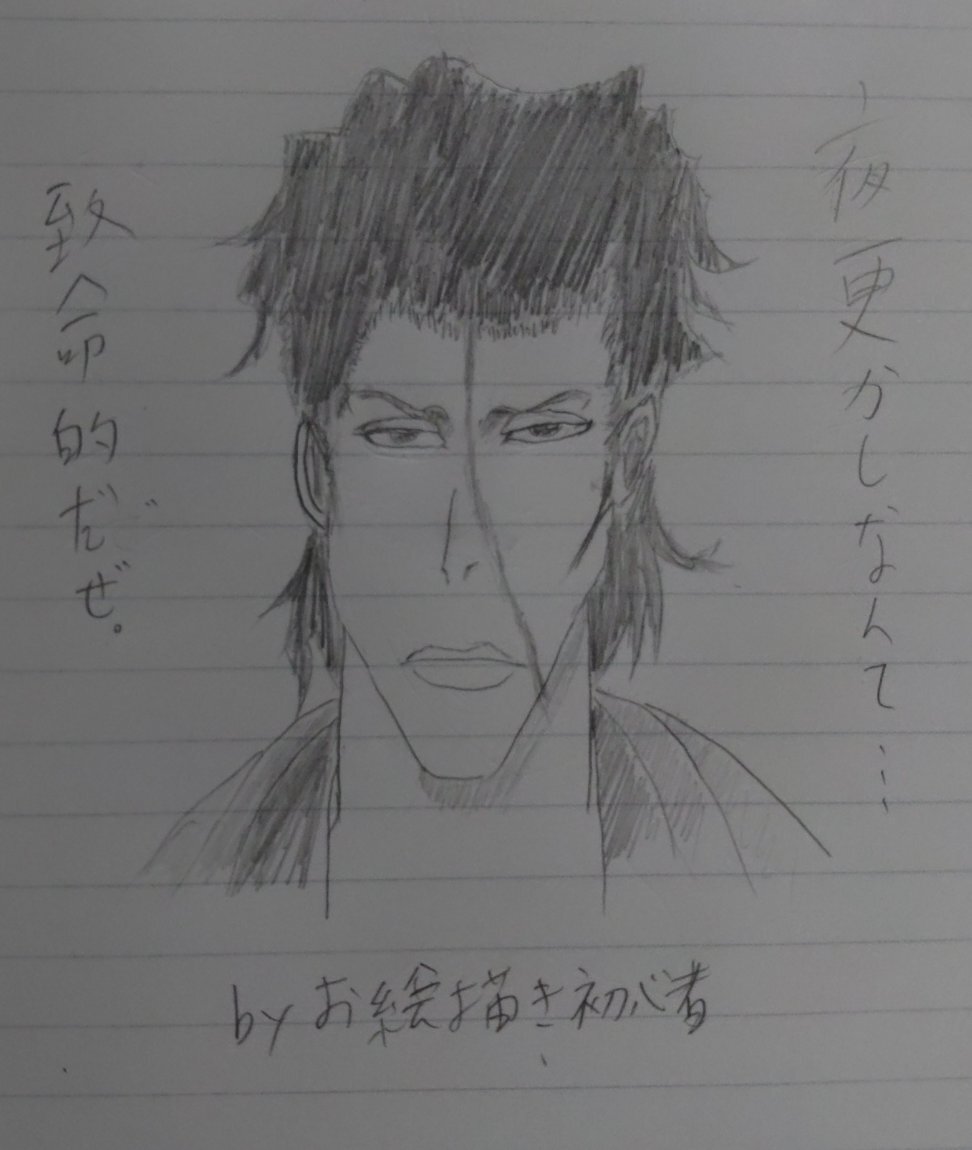 夜更かしなんて…
致命的だぜ。
byお絵描き初心者